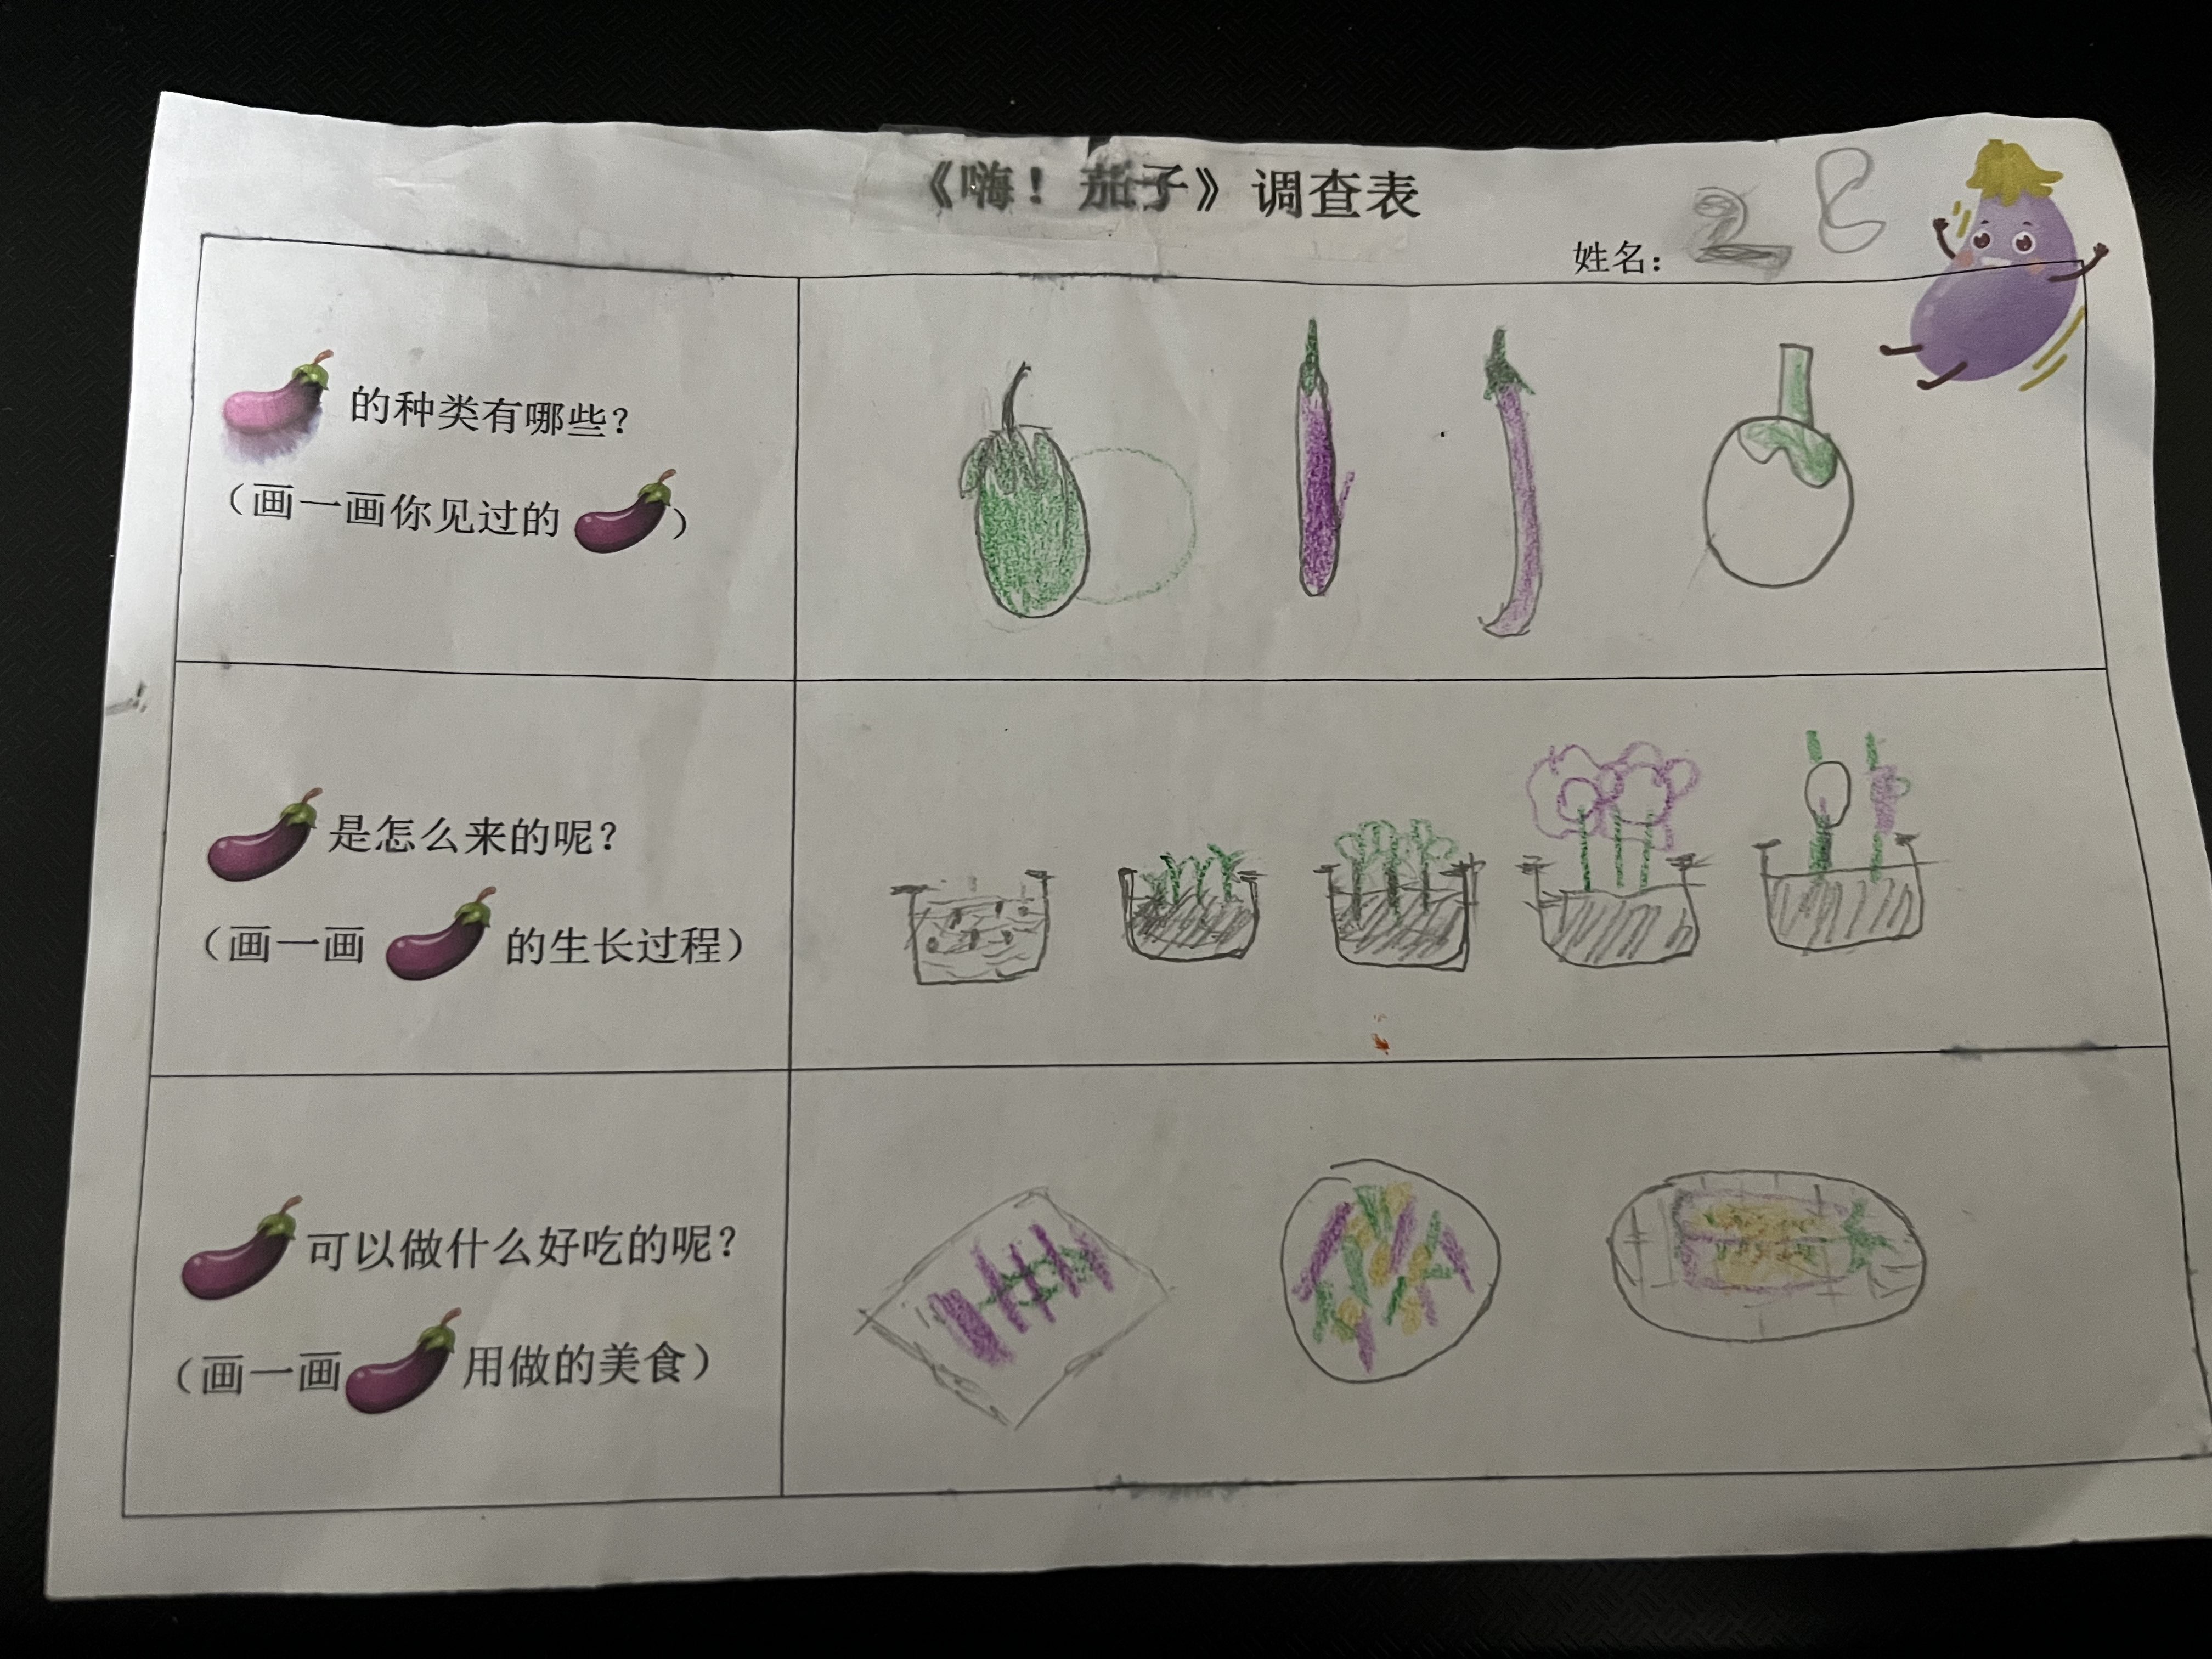 《嗨！茄子》调查表
姓名： 28
的种类有哪些？
（画一画你见过的）
是怎么来的呢？
（画一画的生长过程）
可以做什么好吃的呢？
（画一画用做的美食）